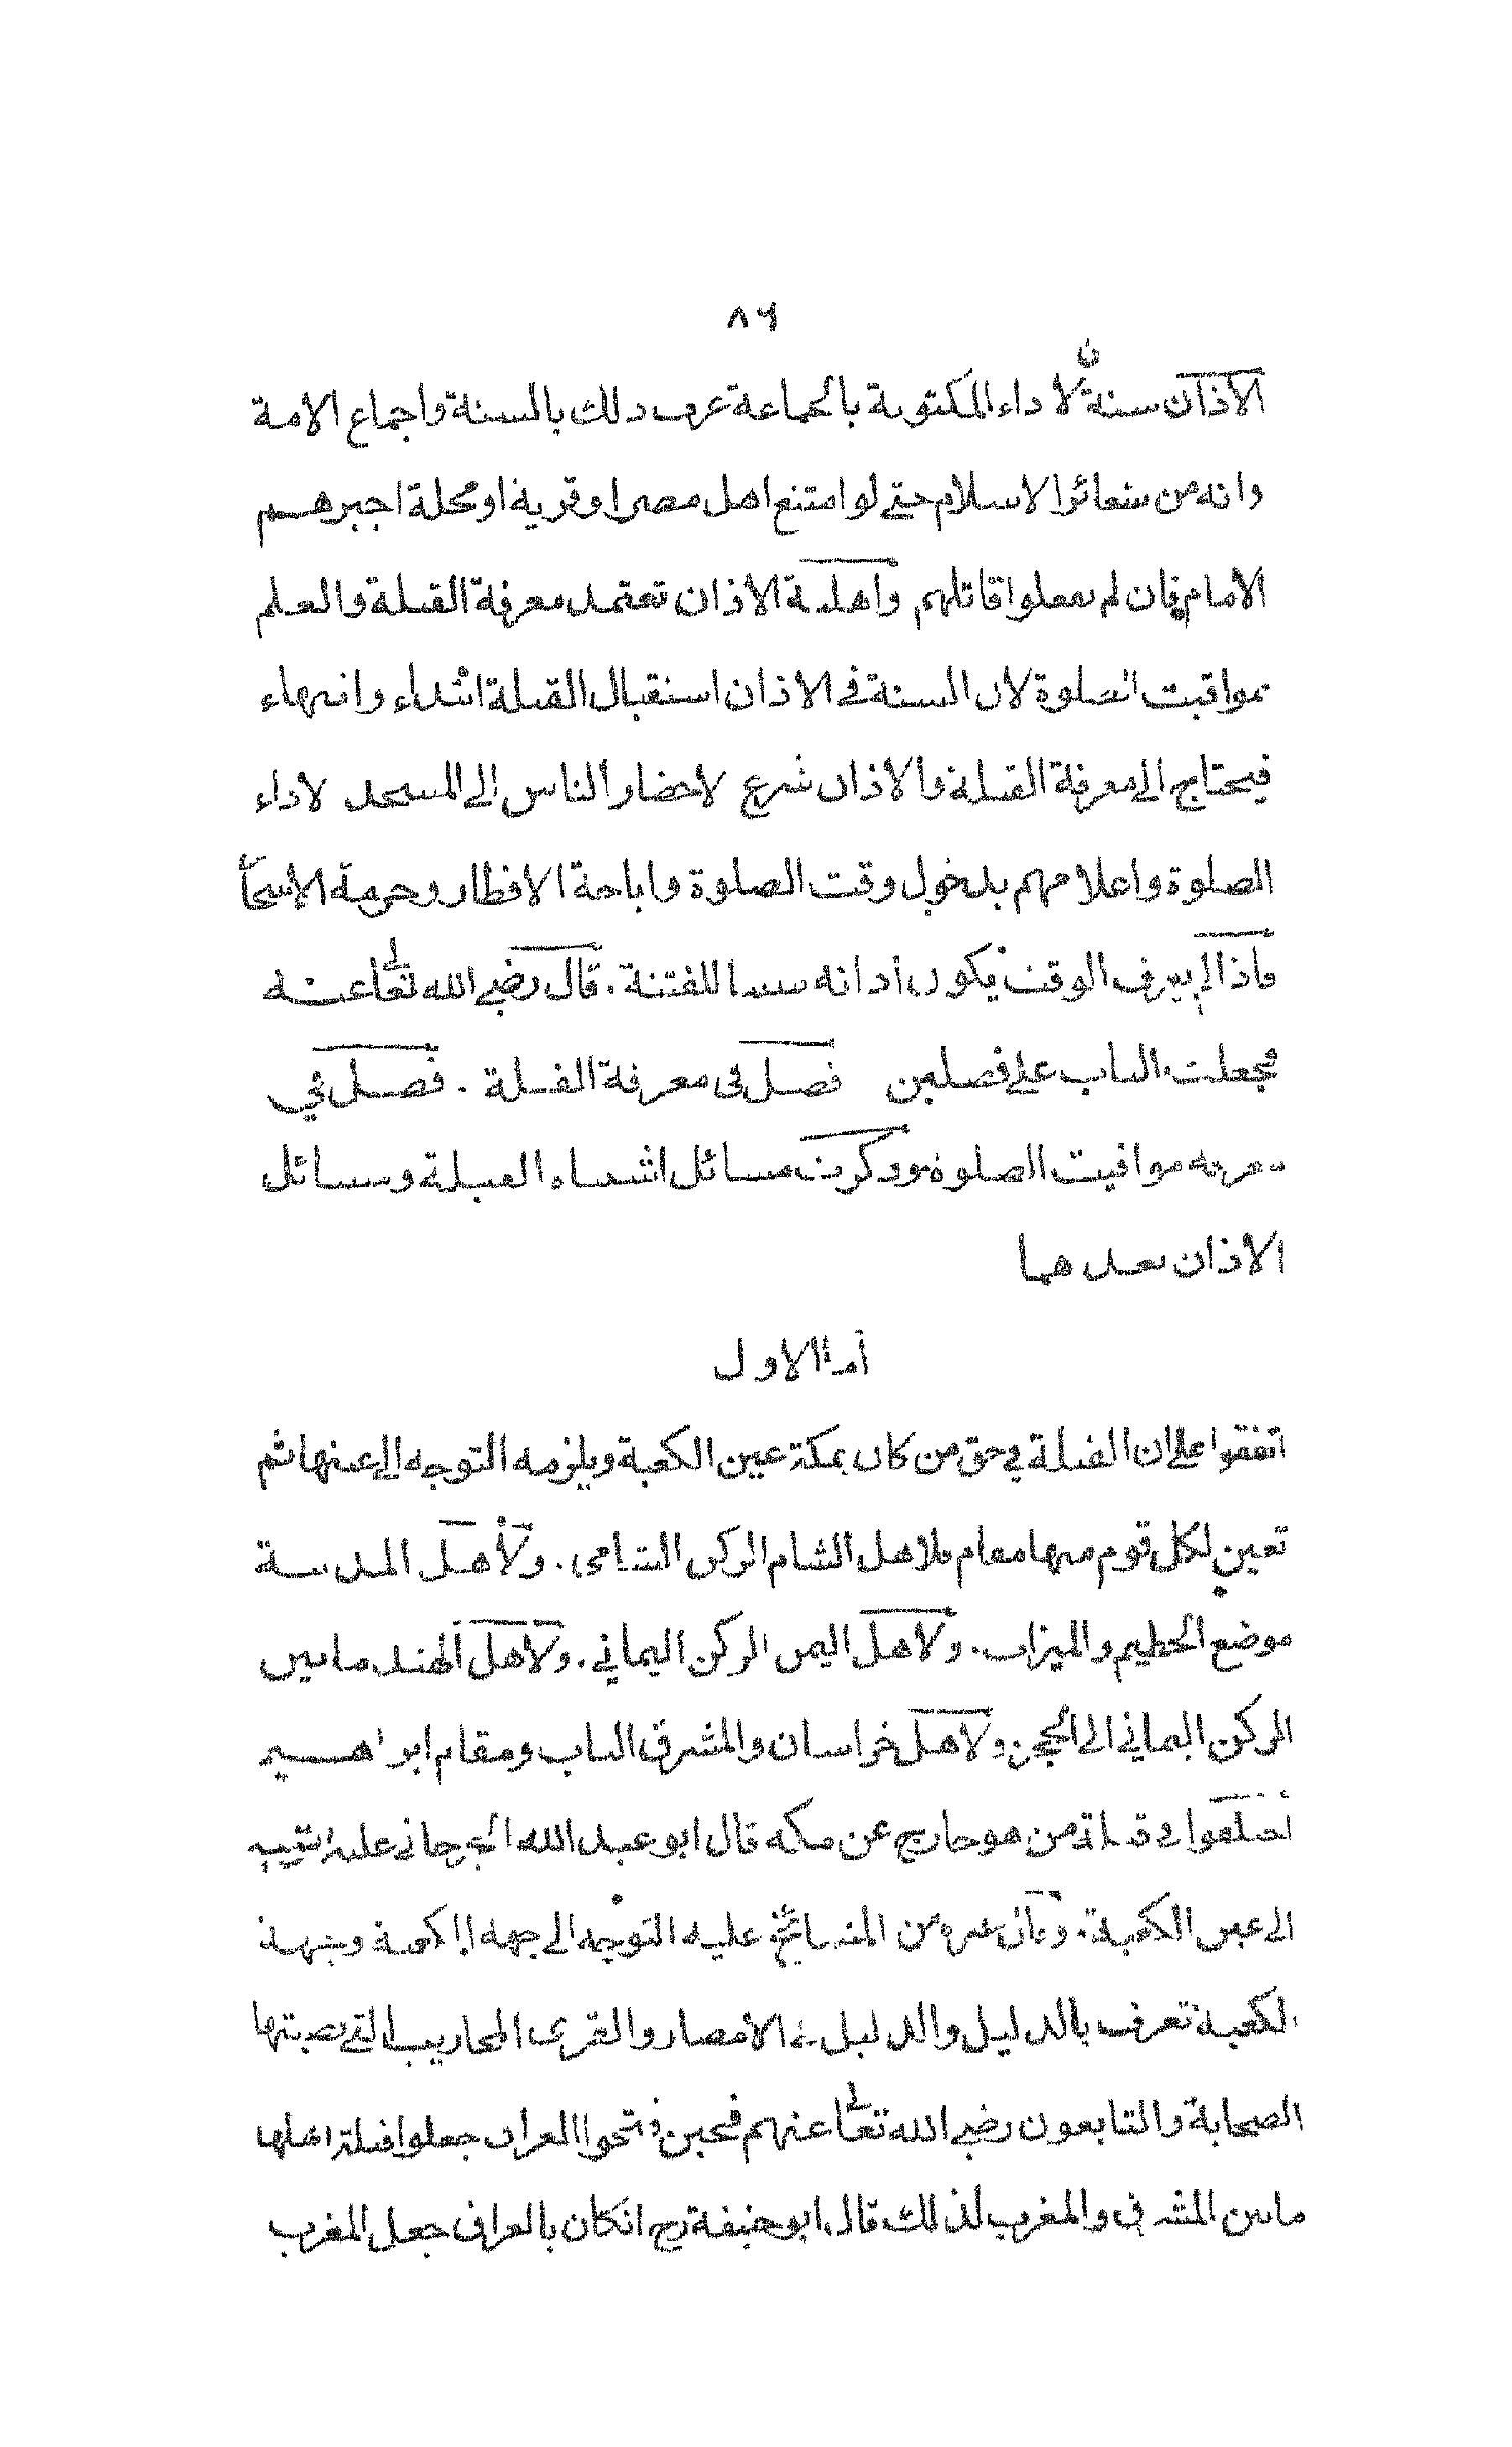 ٨٦
الأذان سنة لاداء المكتوبة بالجماعة عرف ذلك بالسنة واجماع الامة
وانه من شعائر الاسلام حتى لو امتنع اهل مصر او قرية او محلة اجبرهم
الامام فان لم يفعلوا قاتلهم واهلية الاذان تعتمد معرفة القبلة والعلم
بمواقيت الصلوة لان السنة في الاذان استقبال القبلة ابتداء وانتهاء
فيحتاج الى معرفة القبلة والاذان شرع لاحضار الناس الى المسجد لاداء
الصلوة واعلامهم بدخول وقت الصلوة واباحة الافطار وحرمة
فاذا لم يعرف الوقت يكون اذانه سببا للفتنة . قال رضي الله تعالى عنه
فجعلت الباب على فصلين فصل في معرفة القبلة . فصل في
معرفة مواقيت الصلوة وذكرت مسائل اشتباه القبلة ومسائل
الاذان بعدهما
اما الاول
اتفقوا على ان القبلة في حق من كان بمكة عين الكعبة ويلزمه التوجه الى عينها ثم
تعين لكل قوم منها مقام فلاهل الشام الركن الشامي . ولأهل المدينة
موضع الحطيم والميزاب . ولاهل اليمن الركن اليماني . ولأهل الهند ما بين
الركن اليماني الى الحجر ولاهل خراسان والمشرق الباب ومقام ابراهيم
اختلفوا في قبلة من هو خارج عن مكه قال ابو عبد الله الجرجاني
الى عين الكعبة . وقال غيره من المشايخ عليه التوجه الى جهة الكعبة وجهة
الكعبة تعرف بالدليل والدليل في الامصار والقرى المحاريب التي نصبتها
الصحابة والتابعون رضي الله تعالى عنهم فحين فتحوا العراق جعلوا قبلة اهلها
ما بين المشرق والمغرب لذلك قال ابو حنيفة رح ان كان بالعراق جعل المغرب